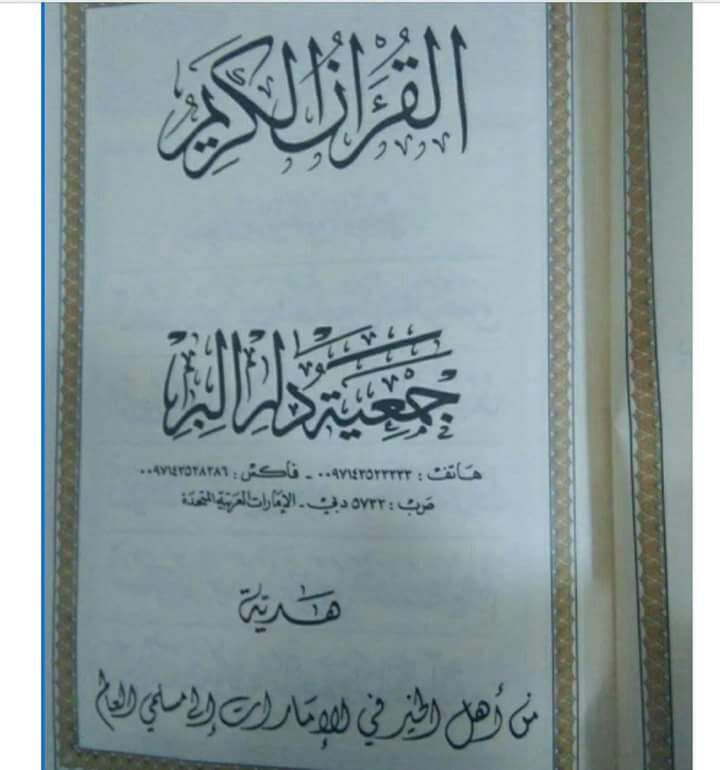 القرآن الكريم
جمعية دار البر
هاتف : ٠٠٩٧١٤٣٥٢٣٣٣٣ - فاكس : ٠٠٩٧١٤٣٥٢٨٢٨٦
ص.ب : ٥٧٣٢ دبي - الإمارات العربية المتحدة
هدية
من أهل الخير في الإمارات إلى مسلمي العالم